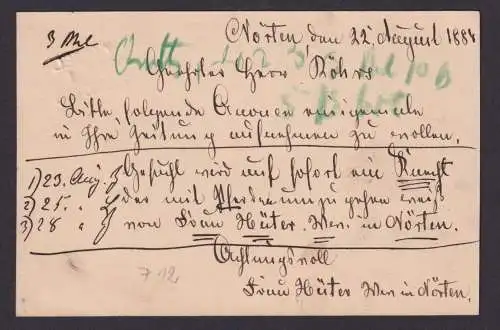 Nörten den 22 August 1888
3 Mal
Geehrter Herr Röhrs
Bitte folgende Anonce einigemale
in Ihre Zeitung aufnehmen zu wollen.
1) 23. Aug Gesucht wird auf sofort ein Knecht
2) 25. " der mit Pferden umzugehen weiß
3) 28 " von Frau Hüter Ww. in Nörten.
Achtungsvoll
Frau Hüter Ww in Nörten.